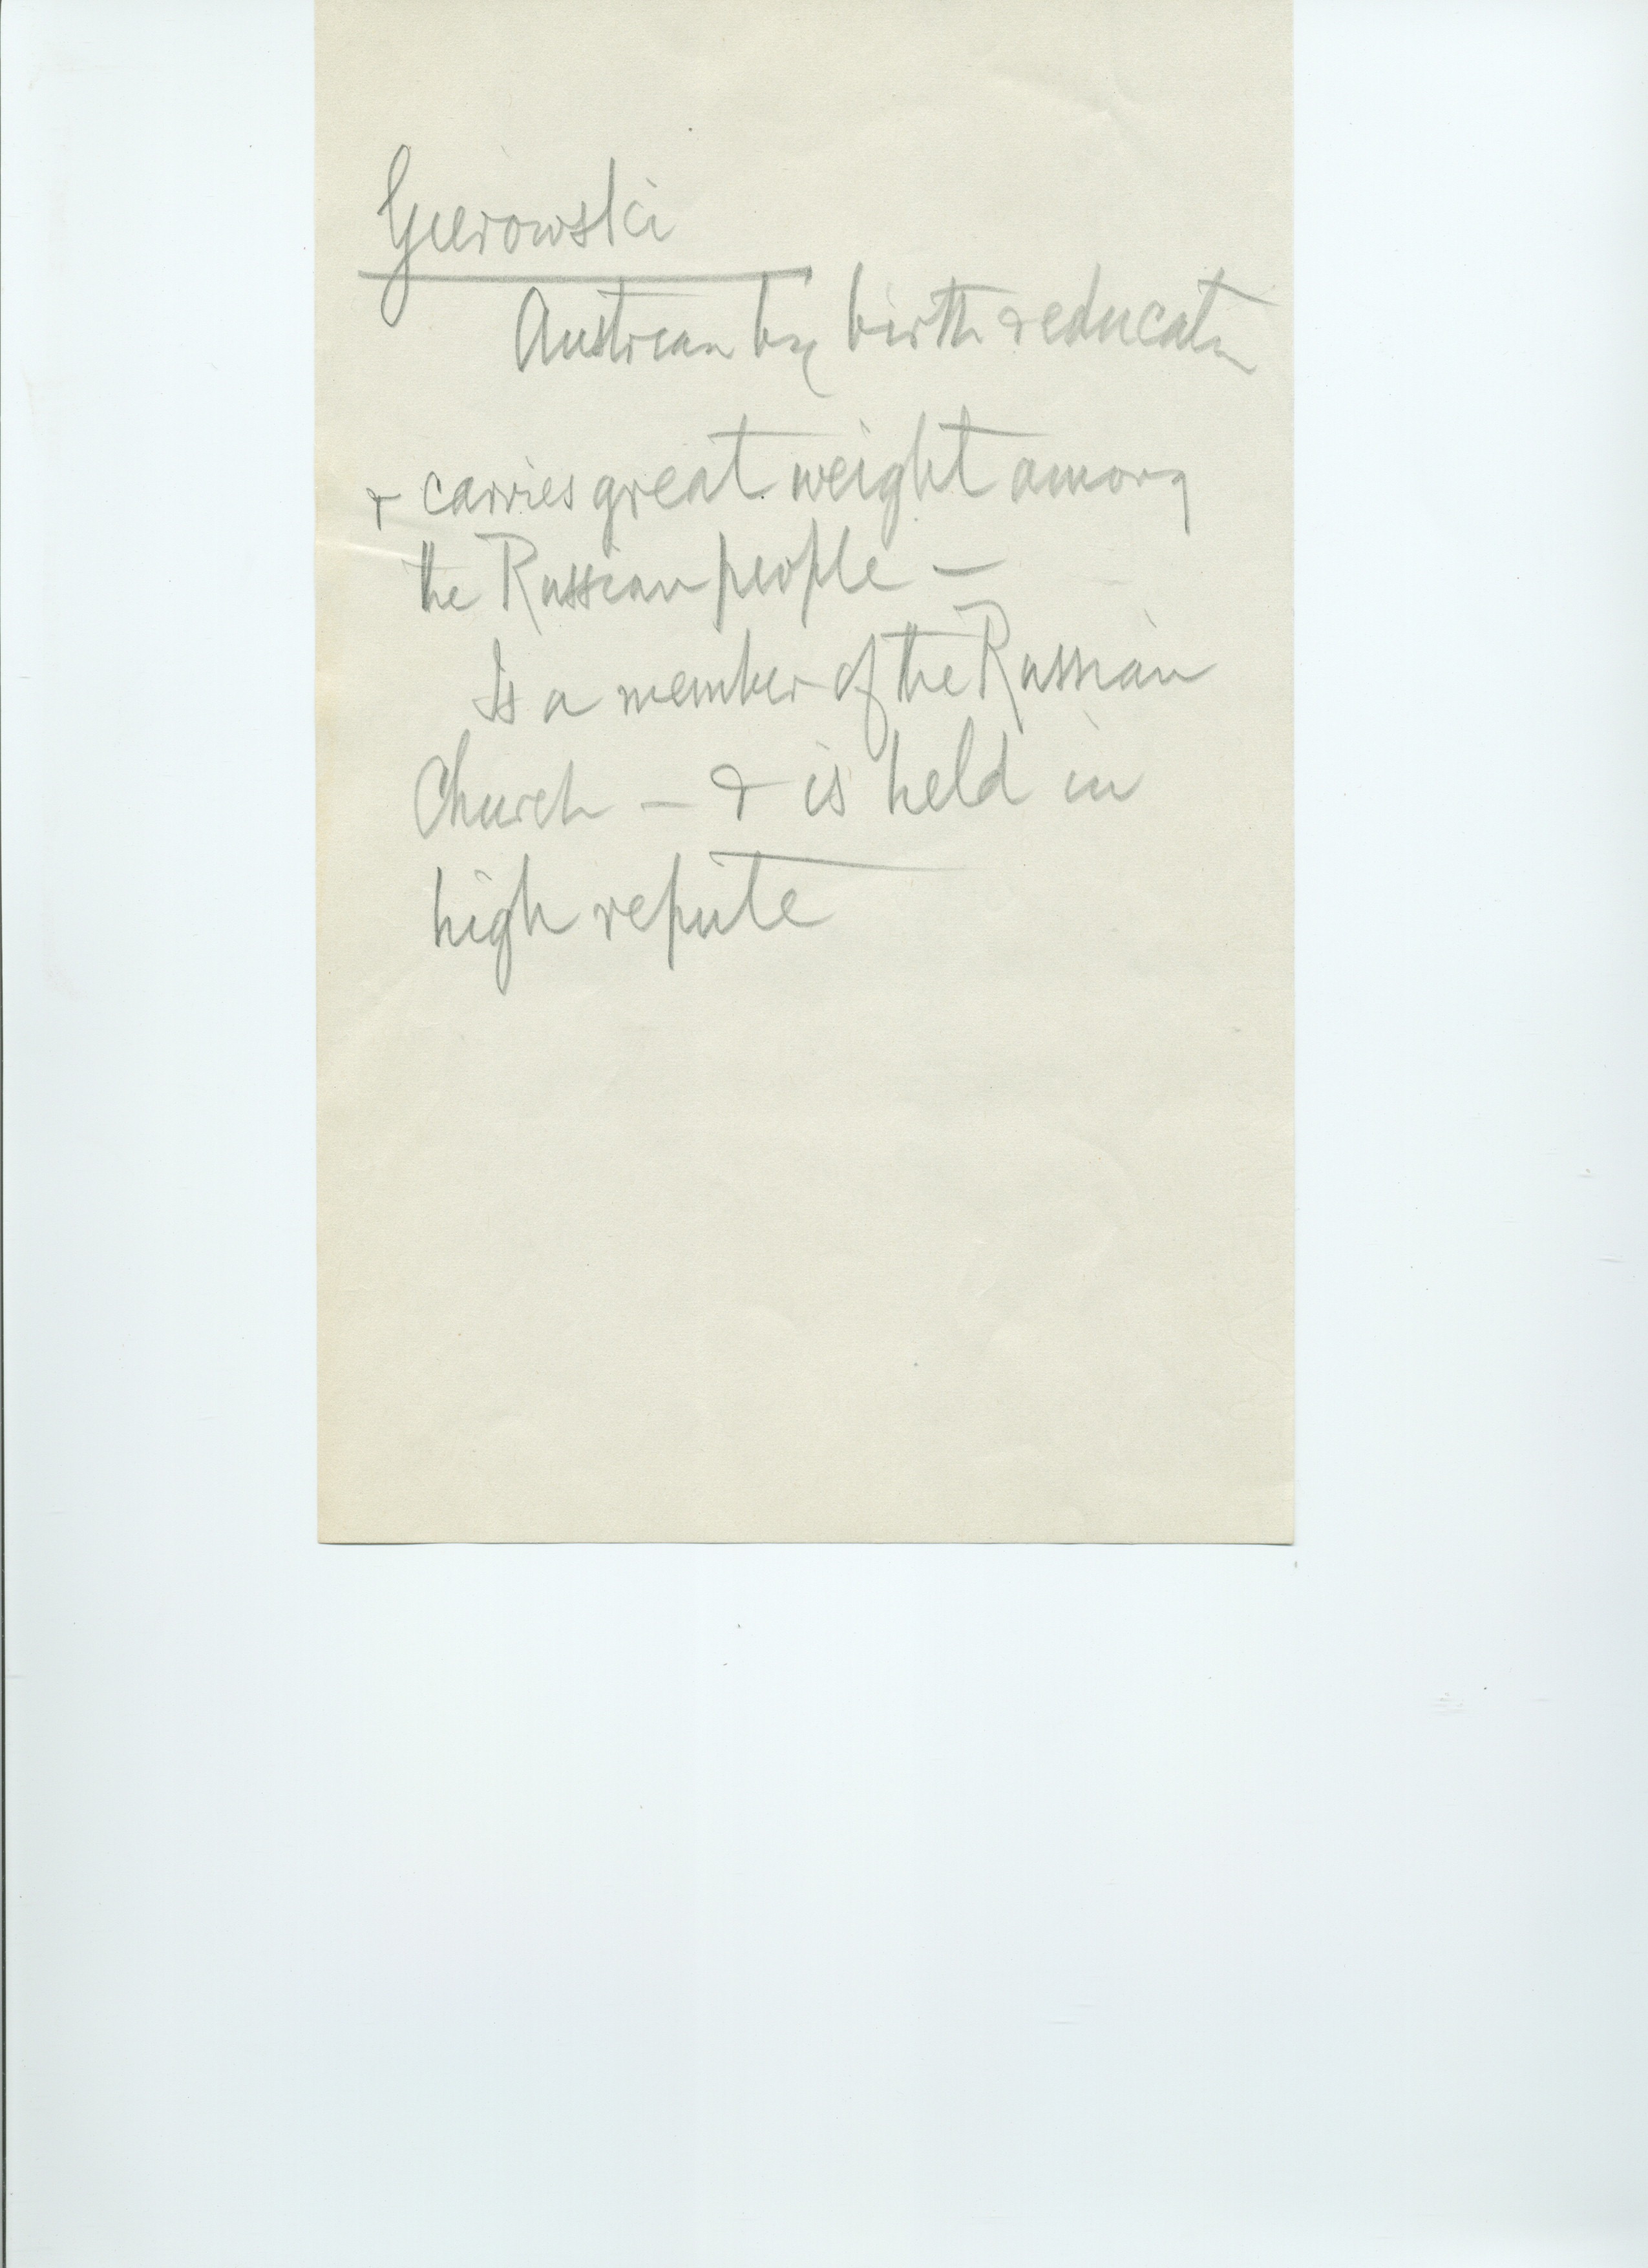 Gierowski
Austrian by birth & educatn
& carries great weight among
the Russian people –
Is a member of the Russian
Church – & is held in
high repute